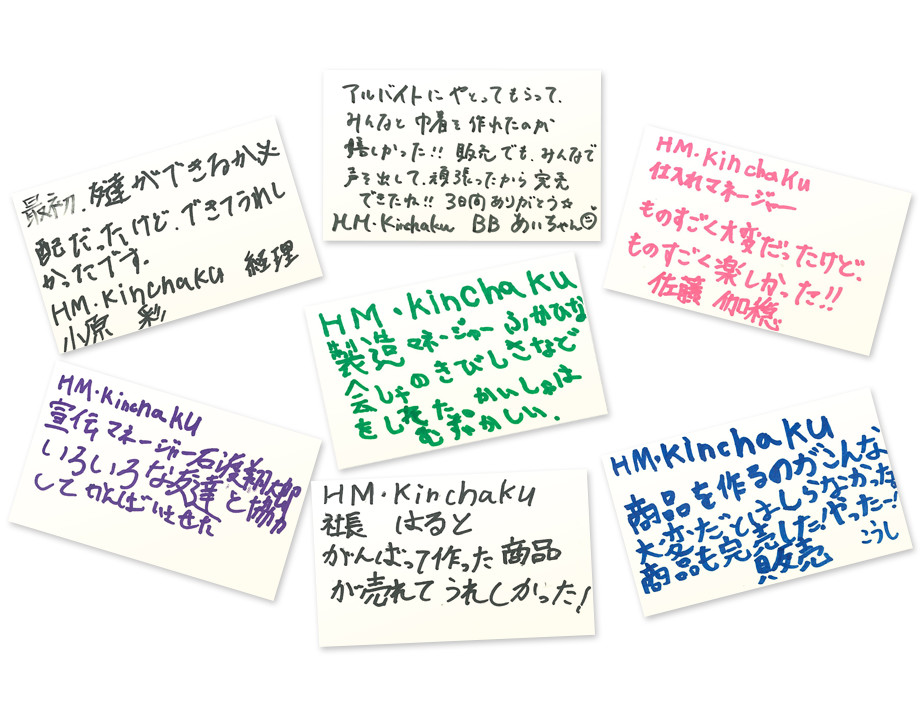 アルバイトにやとってもらって、
みんなと巾着を作れたのが
嬉しかった!! 販売でも、みんなで
声を出して、頑張ったから完売
できたね!! 3日間ありがとう☆
HM・Kinchaku BB めいちゃん
最初、友達ができるか心
配だったけど、できてうれし
かったです。
HM・Kinchaku 経理
小原 彩
HM・Kinchaku
仕入れマネージャー
ものすごく大変だったけど、
ものすごく楽しかった!!
佐藤 伽穂
HM・Kinchaku
製造マネージャー ふかひな
会しゃのきびしさなど
をしれた。かいしゃは
むずかしい.
HM・Kinchaku
宣伝マネージャー石渡翔太郎
いろいろな友達と協力
してがんばいませた
HM・Kinchaku
社長 はると
がんばって作った商品
が売れてうれしかった!
HM・Kinchaku
商品を作るのがこんな
大変だとはしらなかった
商品も完売した!やったー!
販売 こうし